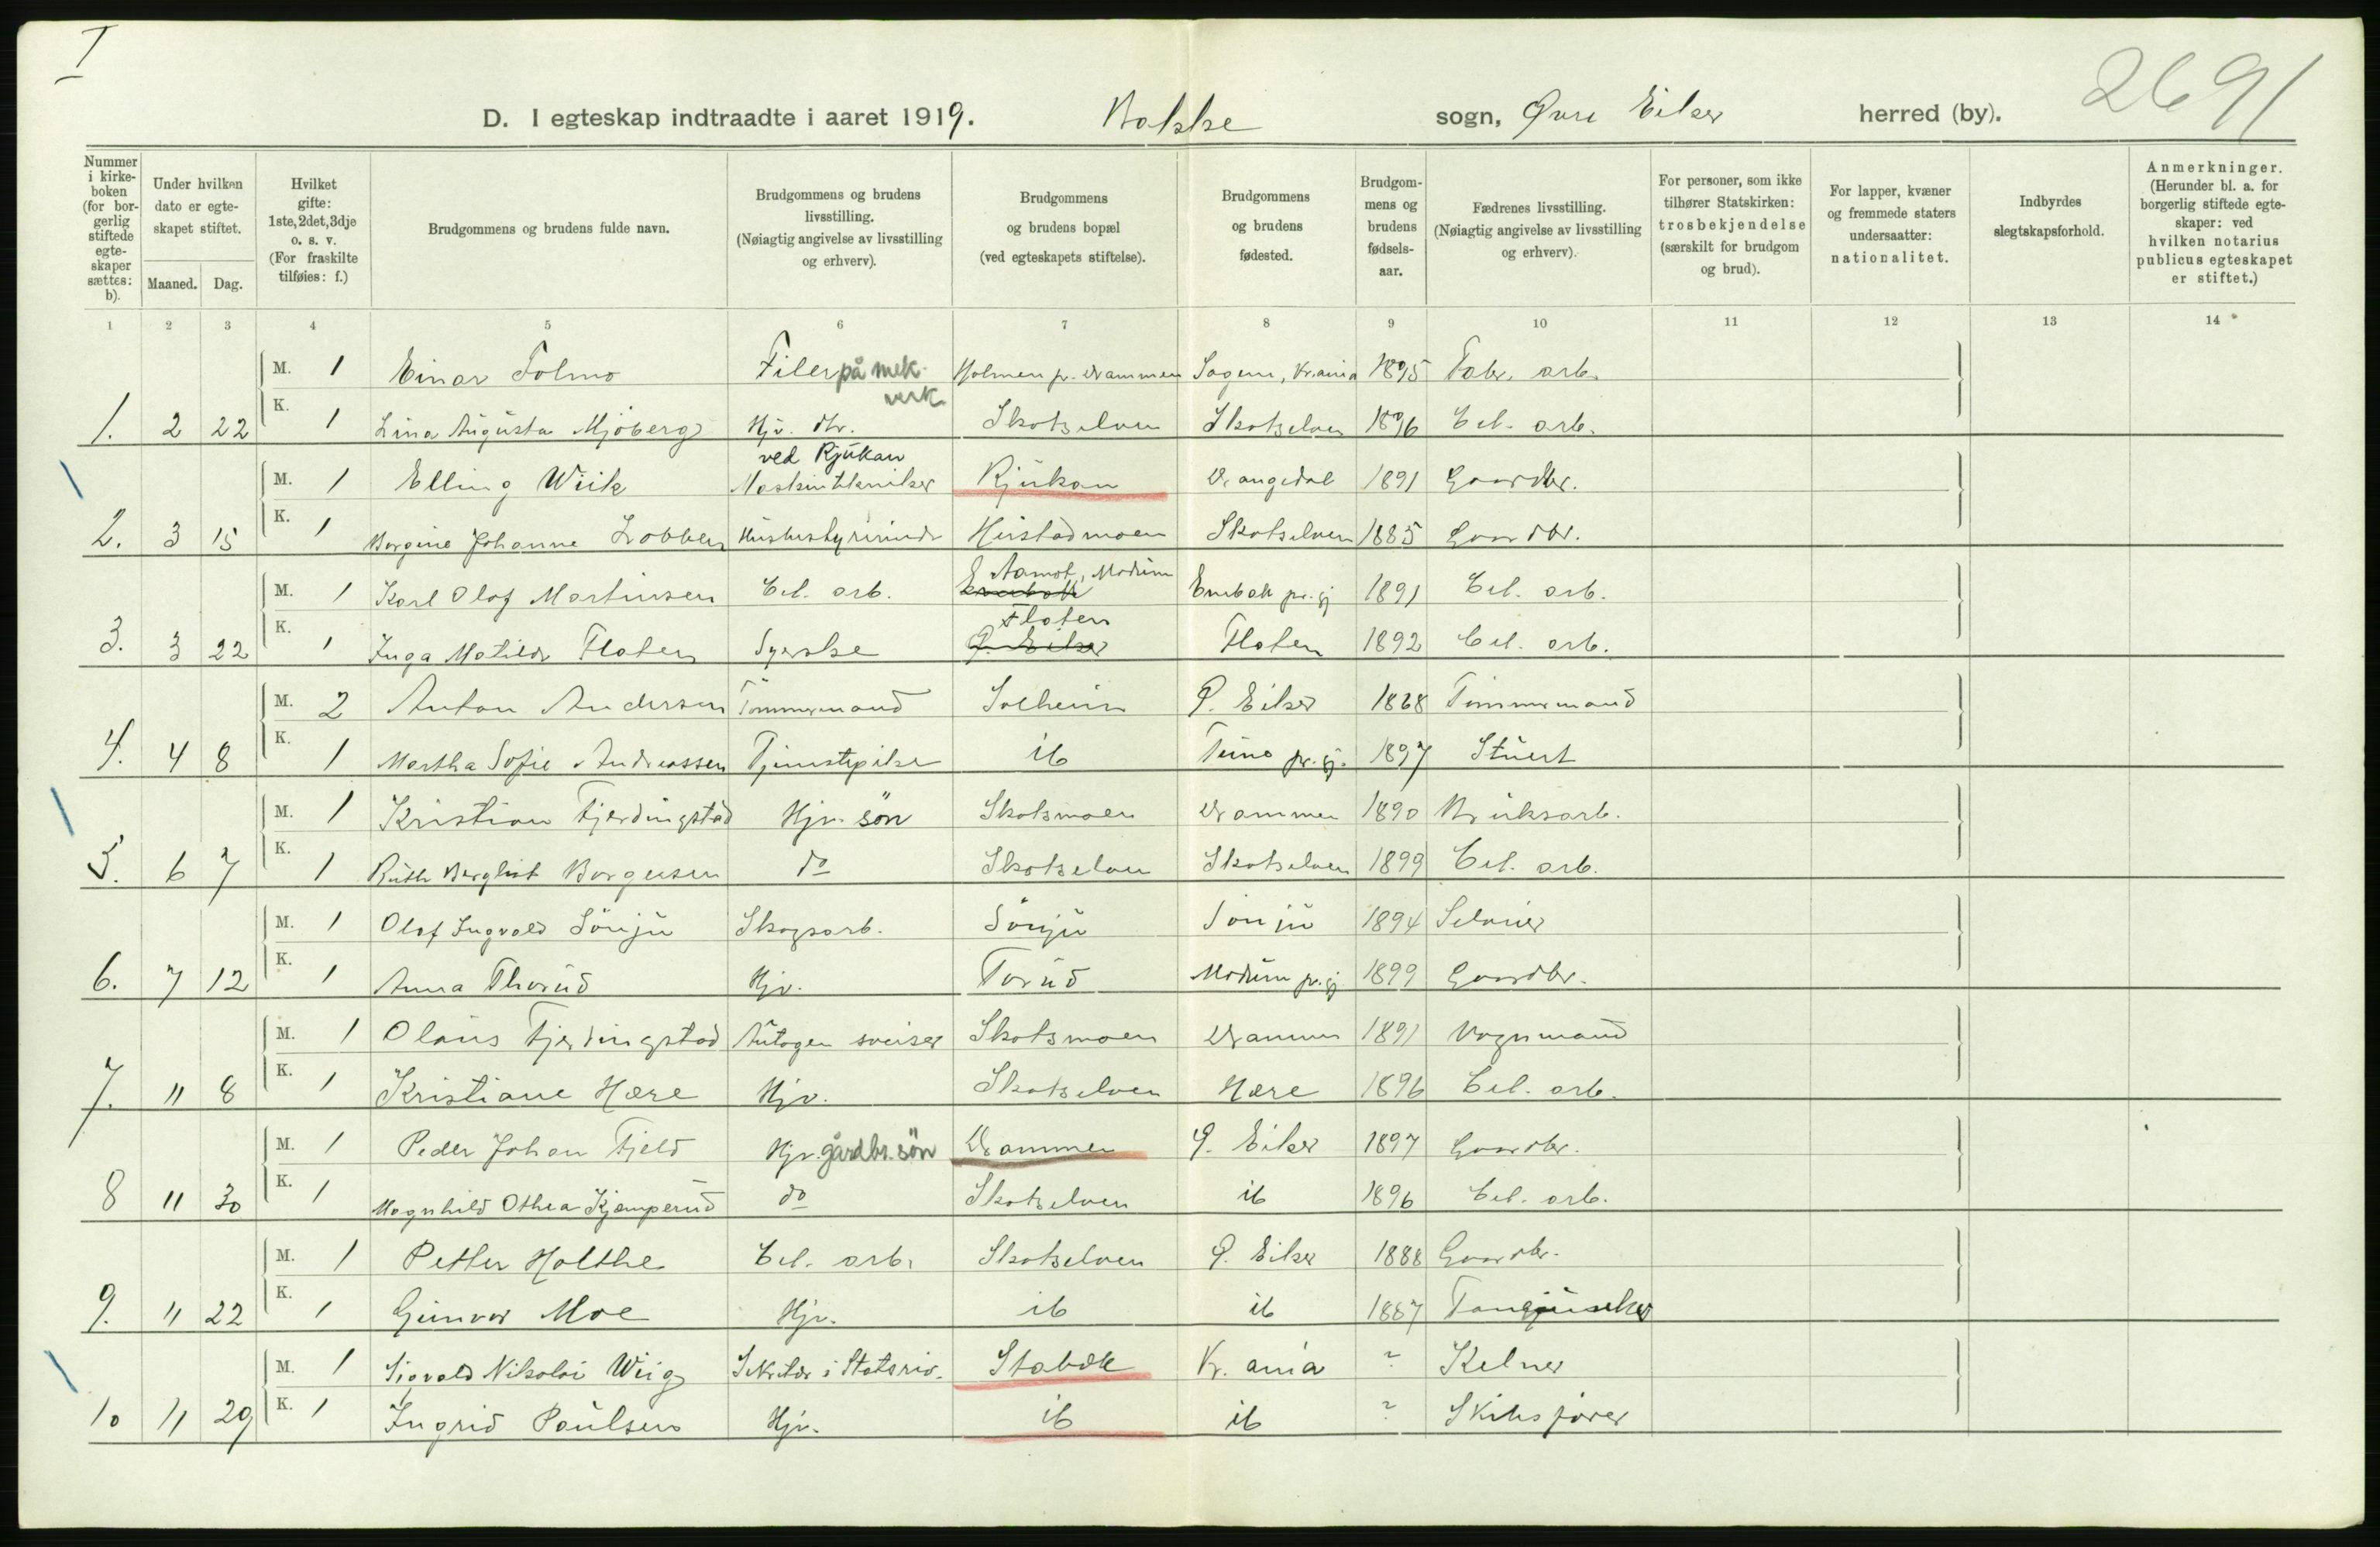 I
2691
D. I egteskap indtraadte i aaret 1919. Bakke sogn, Øvre Eiker herred (by).
Nummer i kirkeboken (for borgerlig stiftede egteskaper sættes: b).
Under hvilken dato er egteskapet stiftet.
Maaned. Dag.
Hvilket gifte: 1ste, 2det, 3dje o. s. v. (For fraskilte tilføies: f.)
Brudgommens og brudens fulde navn.
Brudgommens og brudens livsstilling. (Nøiagtig angivelse av livsstilling og erhverv).
Brudgommens og brudens bopæl (ved egteskapets stiftelse).
Brudgommens og brudens fødested.
Brudgommens og brudens fødselsaar.
Fædrenes livsstilling. (Nøiagtig angivelse av livsstilling og erhverv).
For personer, som ikke tilhører Statskirken: trosbekjendelse (særskilt for brudgom og brud).
For lapper, kvæner og fremmede staters undersaatter: nationalitet.
Indbyrdes slegtskapsforhold.
Anmerkninger. (Herunder bl. a. for borgerlig stiftede egteskaper: ved hvilken notarius publicus egteskapet er stiftet.)
1 2 3 4 5 6 7 8 9 10 11 12 13 14
M. 1 Einar Tolmo Filer på mek. verk Holmen pr. Drammen Sagene, Kr.ania 1895 Fabr. arb.
1. 2 22 K. 1 Lina Augusta Mjöberg Hjv. dtr. Skotselven Skotselven 1896 Cel. arb.
M. 1 Elling Wiik ved Rjukan Maskintekniker Rjukan Drangedal 1891 Gaardbr.
2. 3 15 K. 1 Borgine Johanne Lobben Husbestyrerinde Hustadmoen Skotselven 1885 Gaardbr.
M. 1 Karl Olaf Martinsen Cel. arb. Aamot, Modum Enebak pr.gj 1891 Cel. arb.
3. 3 22 K. 1 Inga Matilde Floten Syerske Floten Ø. Eiker Floten 1892 Cel. arb.
M. 2 Anton Andersen Tömmermand Solheim Ø. Eiker 1868 Tömmermand
4. 4 8 K. 1 Martha Sofie Andreassen Tjenestepike ib Teine pr.gj. 1897 Stuert
M. 1 Kristian Fjerdingstad Hjv. sön Skotsmoen Drammen 1890 Bruksarb.
5. 6 7 K. 1 Ruth Bergliot Borgersen do Skotselven Skotselven 1899 Cel. arb.
M. 1 Olaf Ingvald Sönju Skogsarb. Sönju Sönju 1894 Selveier
6. 7 12 K. 1 Anna Thorud Hjv. Torud Modum pr.gj 1899 Gaardbr.
M. 1 Olaus Fjerdingstad Autogen sveiser Skotsmoen Drammen 1891 Vognmand
7. 11 8 K. 1 Kristiane Hære Hjv. Skotselven Hære 1896 Cel. arb.
M. 1 Peder Johan Fjeld Hjv. gårdbr. sön Drammen Ø. Eiker 1897 Gaardbr.
8 11 30 K. 1 Magnhild Othea Kjemperud do Skotselven ib 1896 Cel. arb.
M. 1 Petter Holthe Cel. arb. Skotselven Ø. Eiker 1888 Gaardbr.
9. 11 22 K. 1 Gunvor Moe Hjv. ib ib 1887
M. 1 Sigvald Nikolai Wiig Sekretær i Statsrev. Stabæk Kr.ania ? Kelner
10 11 29 K. 1 Ingrid Paulsen Hjv. ib ib ? Skibsfører